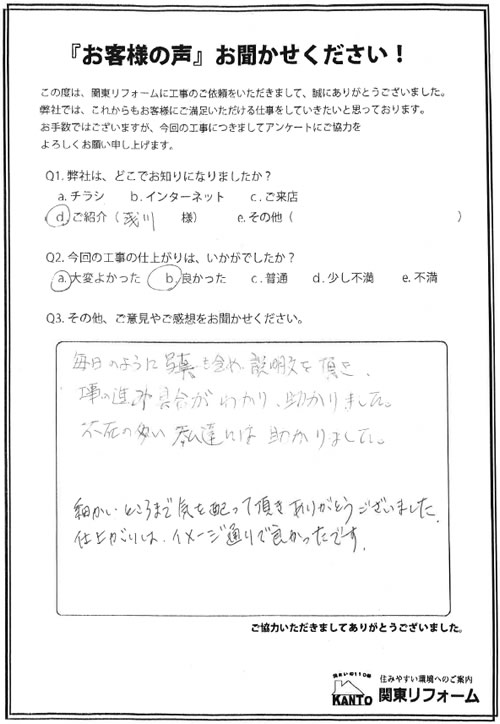 『お客様の声』お聞かせください！
この度は、関東リフォームに工事のご依頼をいただきまして、誠にありがとうございました。
弊社では、これからもお客様にご満足いただける仕事をしていきたいと思っております。
お手数ではございますが、今回の工事につきましてアンケートにご協力を
よろしくお願い申し上げます。
Q1. 弊社は、どこでお知りになりましたか？
a. チラシ b. インターネット c. ご来店
d. ご紹介（ 様） e. その他（ ）
Q2. 今回の工事の仕上がりは、いかがでしたか？
a. 大変よかった b. 良かった c. 普通 d. 少し不満 e. 不満
Q3. その他、ご意見やご感想をお聞かせください。
毎日のように写真も含め、説明文を頂き、
工事の進み具合がわかり、助かりました。
不在の多い私達には助かりました。
細かいところまで気を配って頂きありがとうございました。
仕上がりは、イメージ通りで良かったです。
ご協力いただきましてありがとうございました。
住まいの110番
KANTO
住みやすい環境へのご案内
関東リフォーム